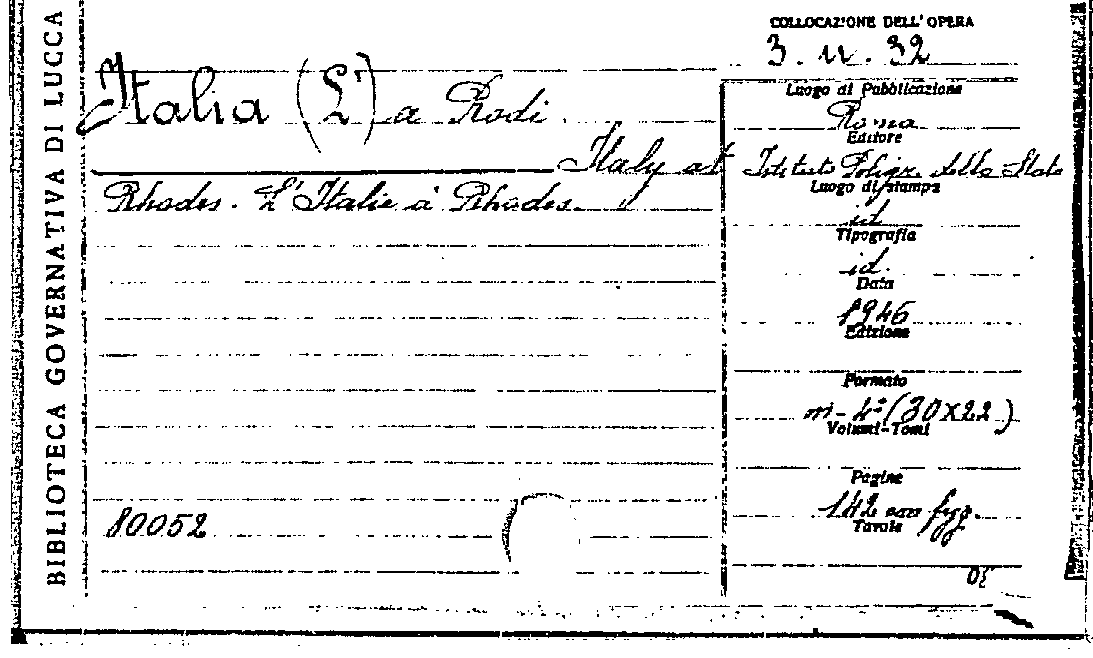 BIBLIOTECA GOVERNATIVA DI LUCCA
COLLOCAZIONE DELL'OPERA
3. 32
Italia (L') a Rodi.
Italy at
Rhodes. L'Italie à Rhodes.
80052
Luogo di Pubblicazione
Roma
Editore
Istituto Poligr. dello Stato
Luogo di stampa
id
Tipografia
id.
Data
1946
Edizione
Formato
m-4° (30X22)
Volumi-Tomi
Pagine
142 con figg.
Tavole